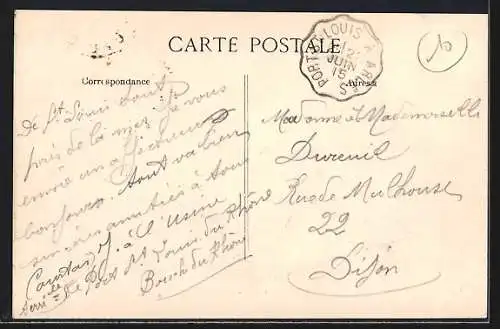 CARTE POSTALE
Correspondance
Adresse
PORT-ST-LOUIS A ARLES
12
JUIN
15
10
De St Louis tout
près de la mer Je vous
envoie un affectueux
bonjours. tout va bien
sincères amitiés à tous
à l'Usine
Port St Louis du Rhône
Bouch du Rhône
Madame et Mademoiselle
Dureuil
Rue de Mulhouse
22
Dijon